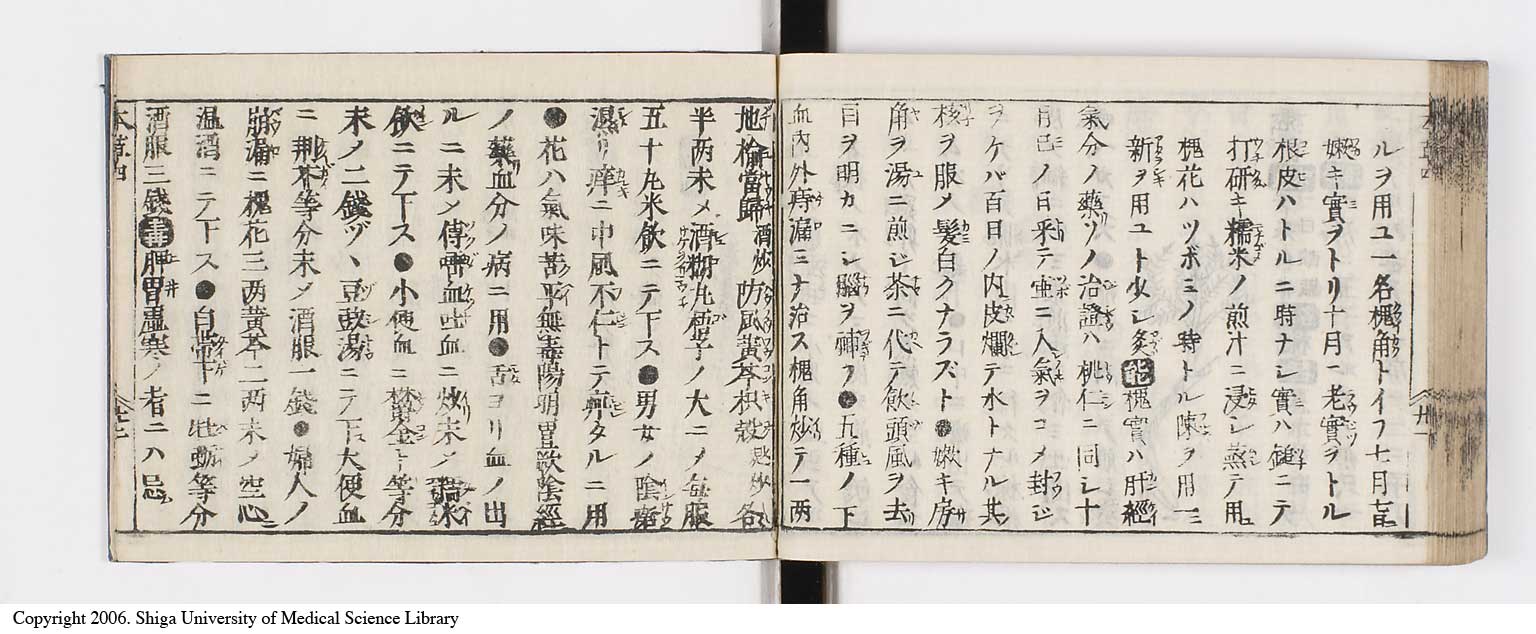 ルヲ用ユ一名槐角トイフ七月
嫩キ實ヲトリ十月ニ老實ヲトル
根皮ハトルニ時ナシ實ハ鎚ニテ
打研キ糯米ノ煎汁ニ浸シ蒸テ用
槐花ハツボミノ時トル陳ヲ用ニ
新ヲ用ユト少シ炙能槐實ハ肝經
氣分ノ藥ソノ治證ハ桃仁ニ同シ十
月巳ノ日采テ壷ニ入氣ヲコメ封ジ
ヲケバ百日ノ内皮爛テ水トナル其
核ヲ服メ髪白クナラズト●嫩キ房
角ヲ湯ニ煎じ茶ニ代テ飲頭風ヲ去
目ヲ明カニシ腦ヲ神フ●五種ノ下
血内外痔漏ミナ治ス槐角炒テ一两
地榆當歸酒炒防風黄芩枳殻麸炒各
半两末メ酒糊丸梧子ノ大ニメ每服
五十丸米飲ニテ下ス●男女ノ陰瘡
濕リ痒ニ中風不仁トテ痺タルニ用
●花ハ氣味苦平無毒陽明厥陰經
ノ藥血分ノ病ニ用●舌ヨリ血ノ出
ルニ末メ傅啑血吐血ニ炒末メ米
飲ニテ下ス●小便血ニ欝金ト等分
末ノ二錢ヅヽ豆豉湯ニテ下大便血
ニ荆芥等分末メ酒服一錢●婦人ノ
崩漏ニ槐花三两黄芩二两末メ空心
温酒ニテ下ス●白帶下ニ牡蛎等分
酒服三錢毒脾胃虚寒ノ者ニハ忌
本草四
廿一